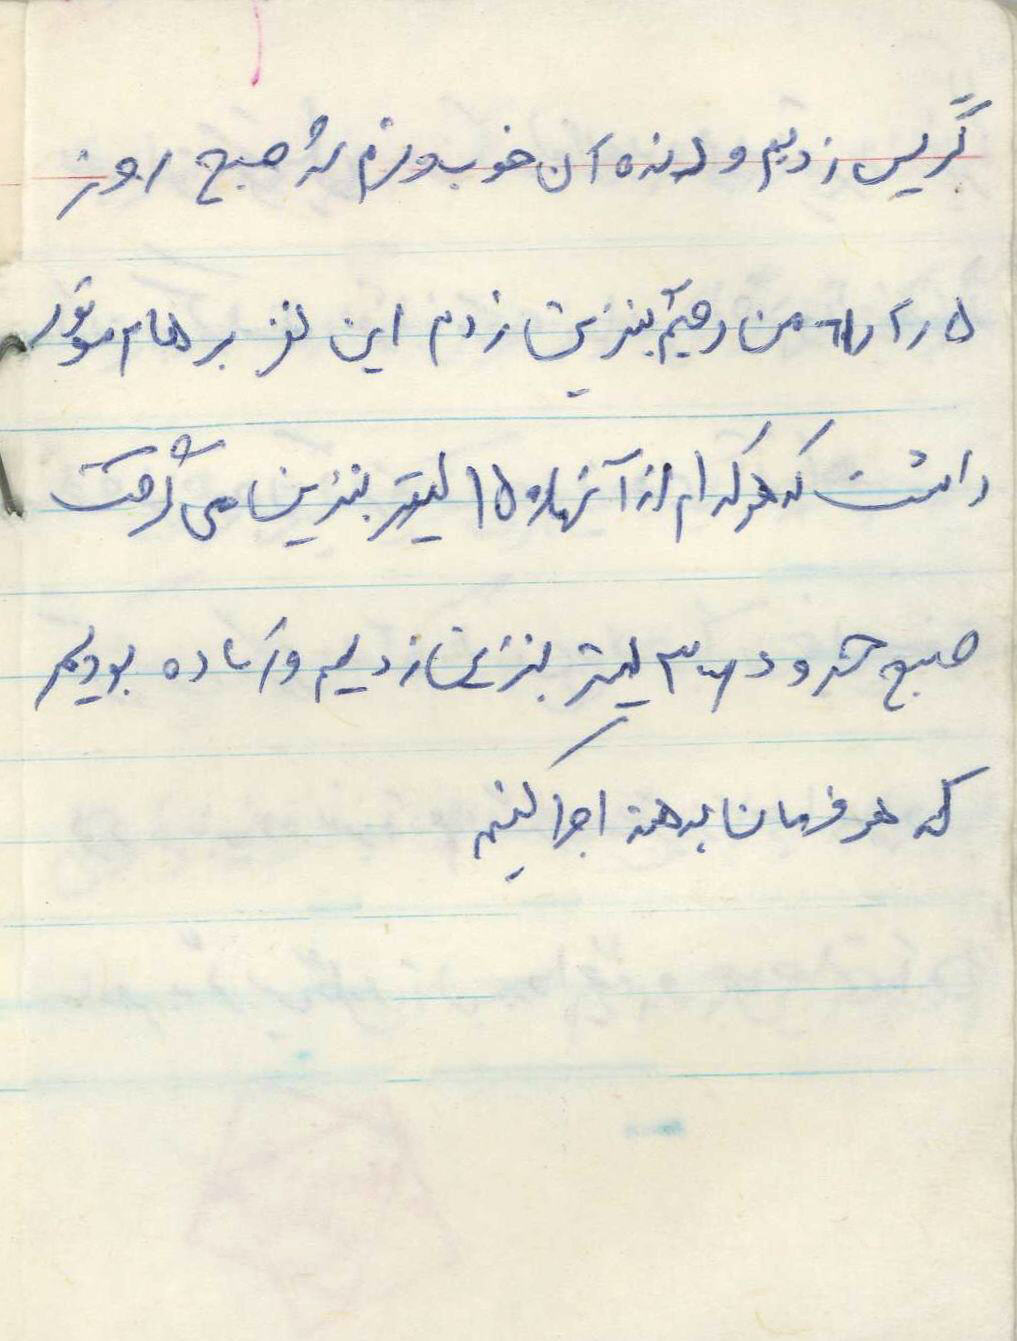 گریس زدیم و دنده آن خوب ورزم شد صبح روز
من رفتیم بنزین زدم این نفر بر هام موتور
داشت که هر کدام از آنها ۱۵۰ لیتر بنزین می گرفت
صبح حدود ۳۰۰ لیتر بنزین زدیم و آماده بودیم
که هر فرمان بدهند اجرا کنیم